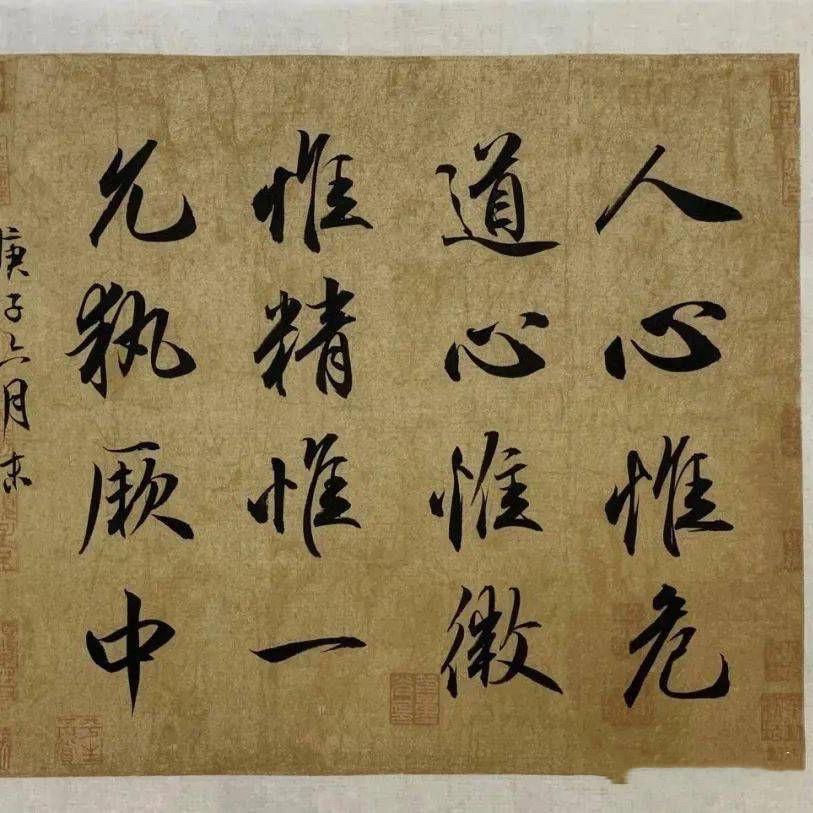 人心惟危
道心惟微
惟精惟一
允執厥中
庚子六月末